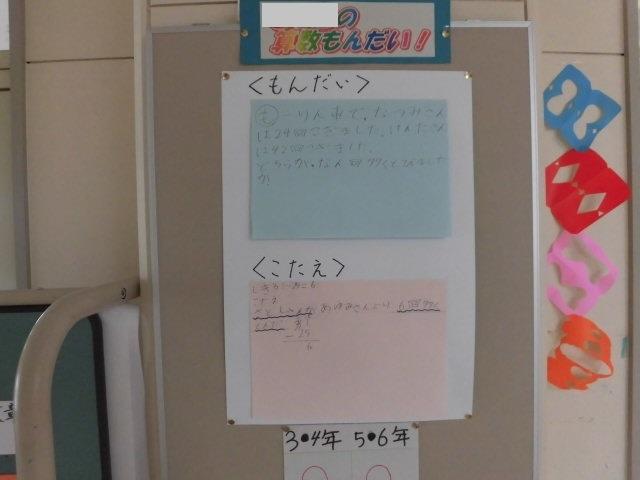 の
算数もんだい!
＜もんだい＞
も 一りん車で、なつみさん
は24回こぎました。けんたさん
は42回こぎました。
どちらが、なん回多くこぎました
か。
＜こたえ＞
しき
こたえ
あゆみさんより 6回多く
31
－25
6
3・4年 5・6年